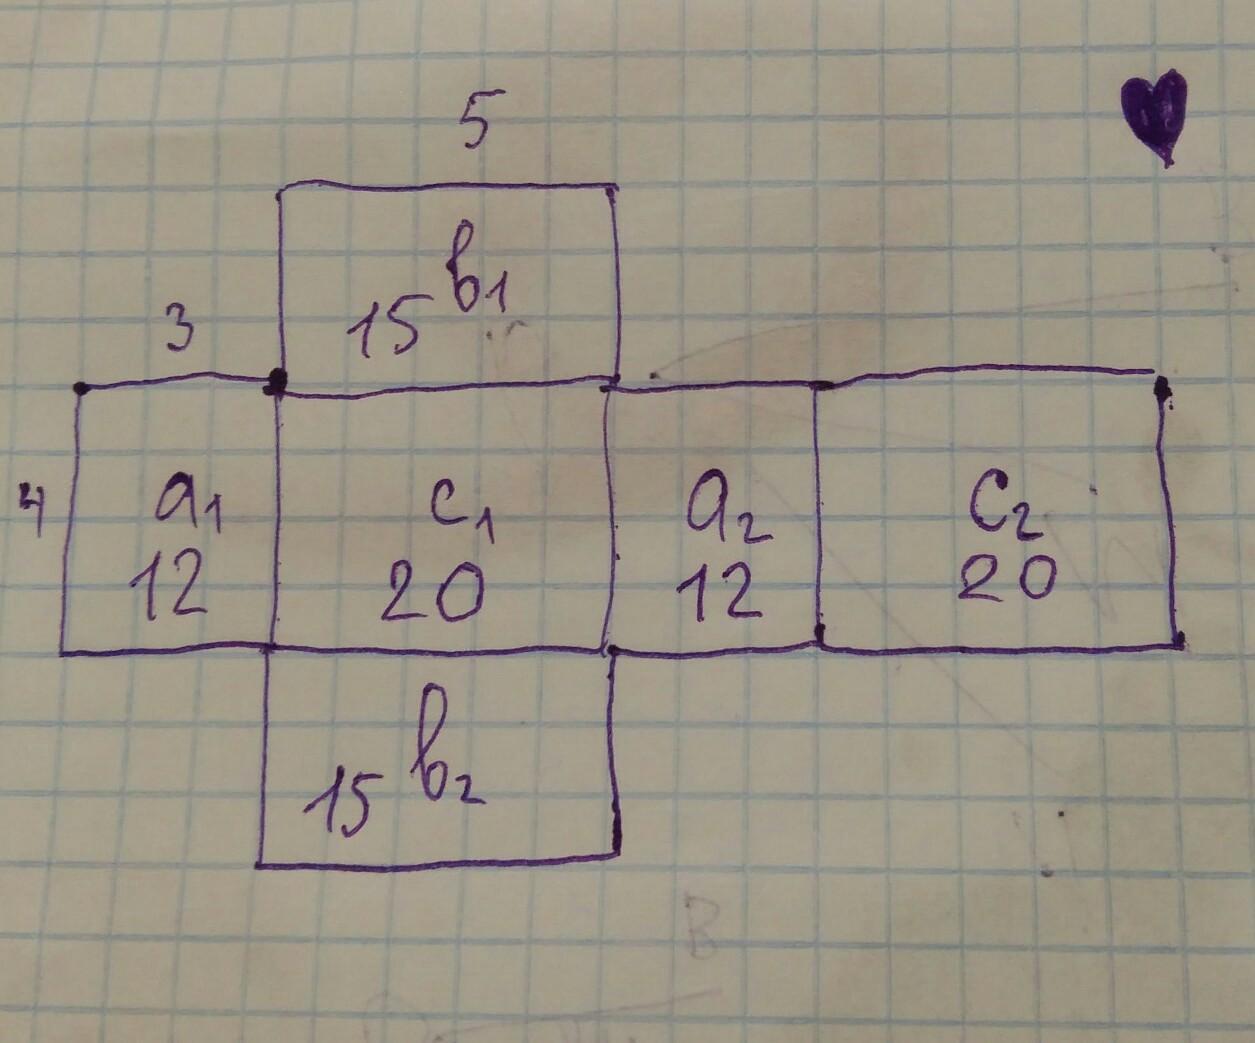 5
15 b1
3
4
a1
12
c1
20
a2
12
c2
20
15 b2
B